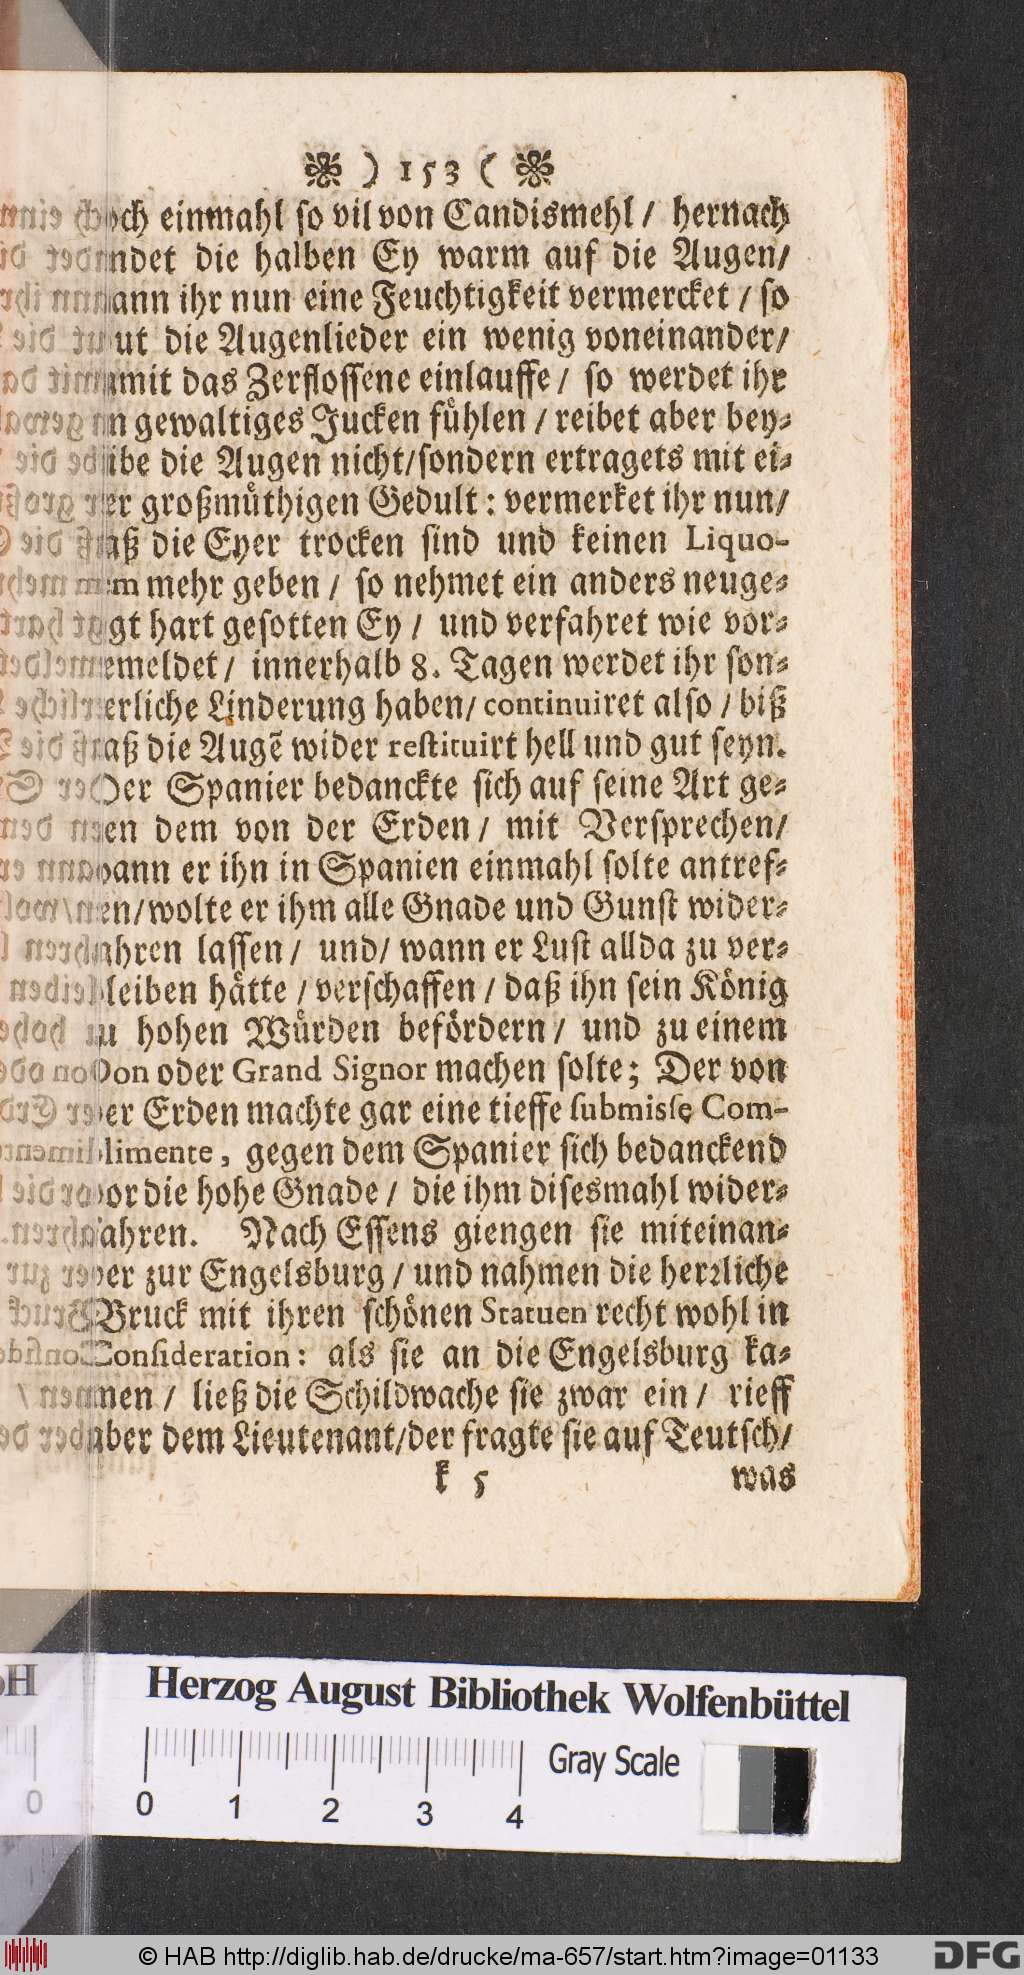 ) 153 (
noch einmahl so vil von Candismehl / hernach
bindet die halben Ey warm auf die Augen/
wann ihr nun eine Feuchtigkeit vermercket / so
thut die Augenlieder ein wenig voneinander/
damit das Zerflossene einlauffe / so werdet ihr
ein gewaltiges Jucken fůhlen / reibet aber bey-
leibe die Augen nicht/sondern ertragets mit ei-
ner großmůthigen Gedult: vermerket ihr nun/
daß die Eyer trocken sind und keinen Liquo-
rem mehr geben / so nehmet ein anders neuge-
legt hart gesotten Ey / und verfahret wie vor-
gemeldet / innerhalb 8. Tagen werdet ihr son-
derliche Linderung haben/ continuiret also / biß
daß die Augē wider restituirt hell und gut seyn.
Der Spanier bedanckte sich auf seine Art ge-
gen dem von der Erden / mit Versprechen/
wann er ihn in Spanien einmahl solte antref-
fen/wolte er ihm alle Gnade und Gunst wider-
fahren lassen / und/ wann er Lust allda zu ver-
bleiben håtte / verschaffen / daß ihn sein König
zu hohen Wůrden befördern / und zu einem
Don oder Grand Signor machen solte; Der von
der Erden machte gar eine tieffe submissę Com-
plimente, gegen dem Spanier sich bedanckend
vor die hohe Gnade / die ihm disesmahl wider-
fahren. Nach Essens giengen sie miteinan-
der zur Engelsburg / und nahmen die herꝛliche
Bruck mit ihren schönen Statuen recht wohl in
Consideration: als sie an die Engelsburg ka-
men / ließ die Schildwache sie zwar ein / rieff
aber dem Lieutenant/der fragte sie auf Teutsch/
k 5 was
Herzog August Bibliothek Wolfenbüttel
0 0 1 2 3 4 Gray Scale
© HAB http://diglib.hab.de/drucke/ma-657/start.htm?image=01133 DFG